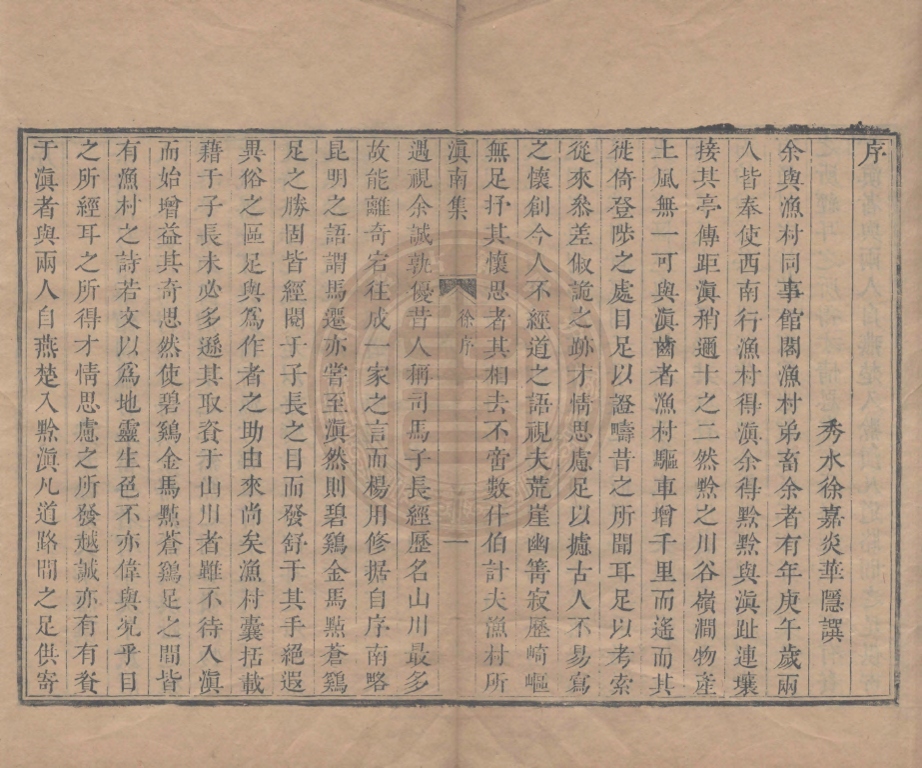 序
秀水徐嘉炎華隱譔
余與漁村同事館閣漁村弟畜余者有年庚午歲兩
人皆奉使西南行漁村得滇余得黔黔與滇趾連壤
接其亭傳距滇稍邇十之二然黔之川谷嶺澗物產
土風無一可與滇齒者漁村驅車增千里而遙而其
徙倚登陟之處目足以證疇昔之所聞耳足以考索
從來叅差俶詭之跡才情思慮足以攄古人不易寫
之懷創今人不經道之語視夫荒崖幽箐寂歷崎嶇
無足抒其懷思者其相去不啻數什伯計夫漁村所
滇南集
徐序
一
遇視余誠孰優昔人稱司馬子長經歷名山川最多
故能離奇宕往成一家之言而楊用修据自序南略
昆明之語謂馬遷亦嘗至滇然則碧鷄金馬㸃蒼鷄
足之勝固皆經閱于子長之目而發舒于其手絕遐
異俗之區足與爲作者之助由來尚矣漁村囊括載
藉于子長未必多遜其取資于山川者雖不待入滇
而始增益其奇思然使碧鷄金馬㸃蒼鷄足之間皆
有漁村之詩若文以爲地靈生色不亦偉與況乎目
之所經耳之所得才情思慮之所發越誠亦有有資
于滇者與兩人自燕楚入黔滇凡道路間之足供寄